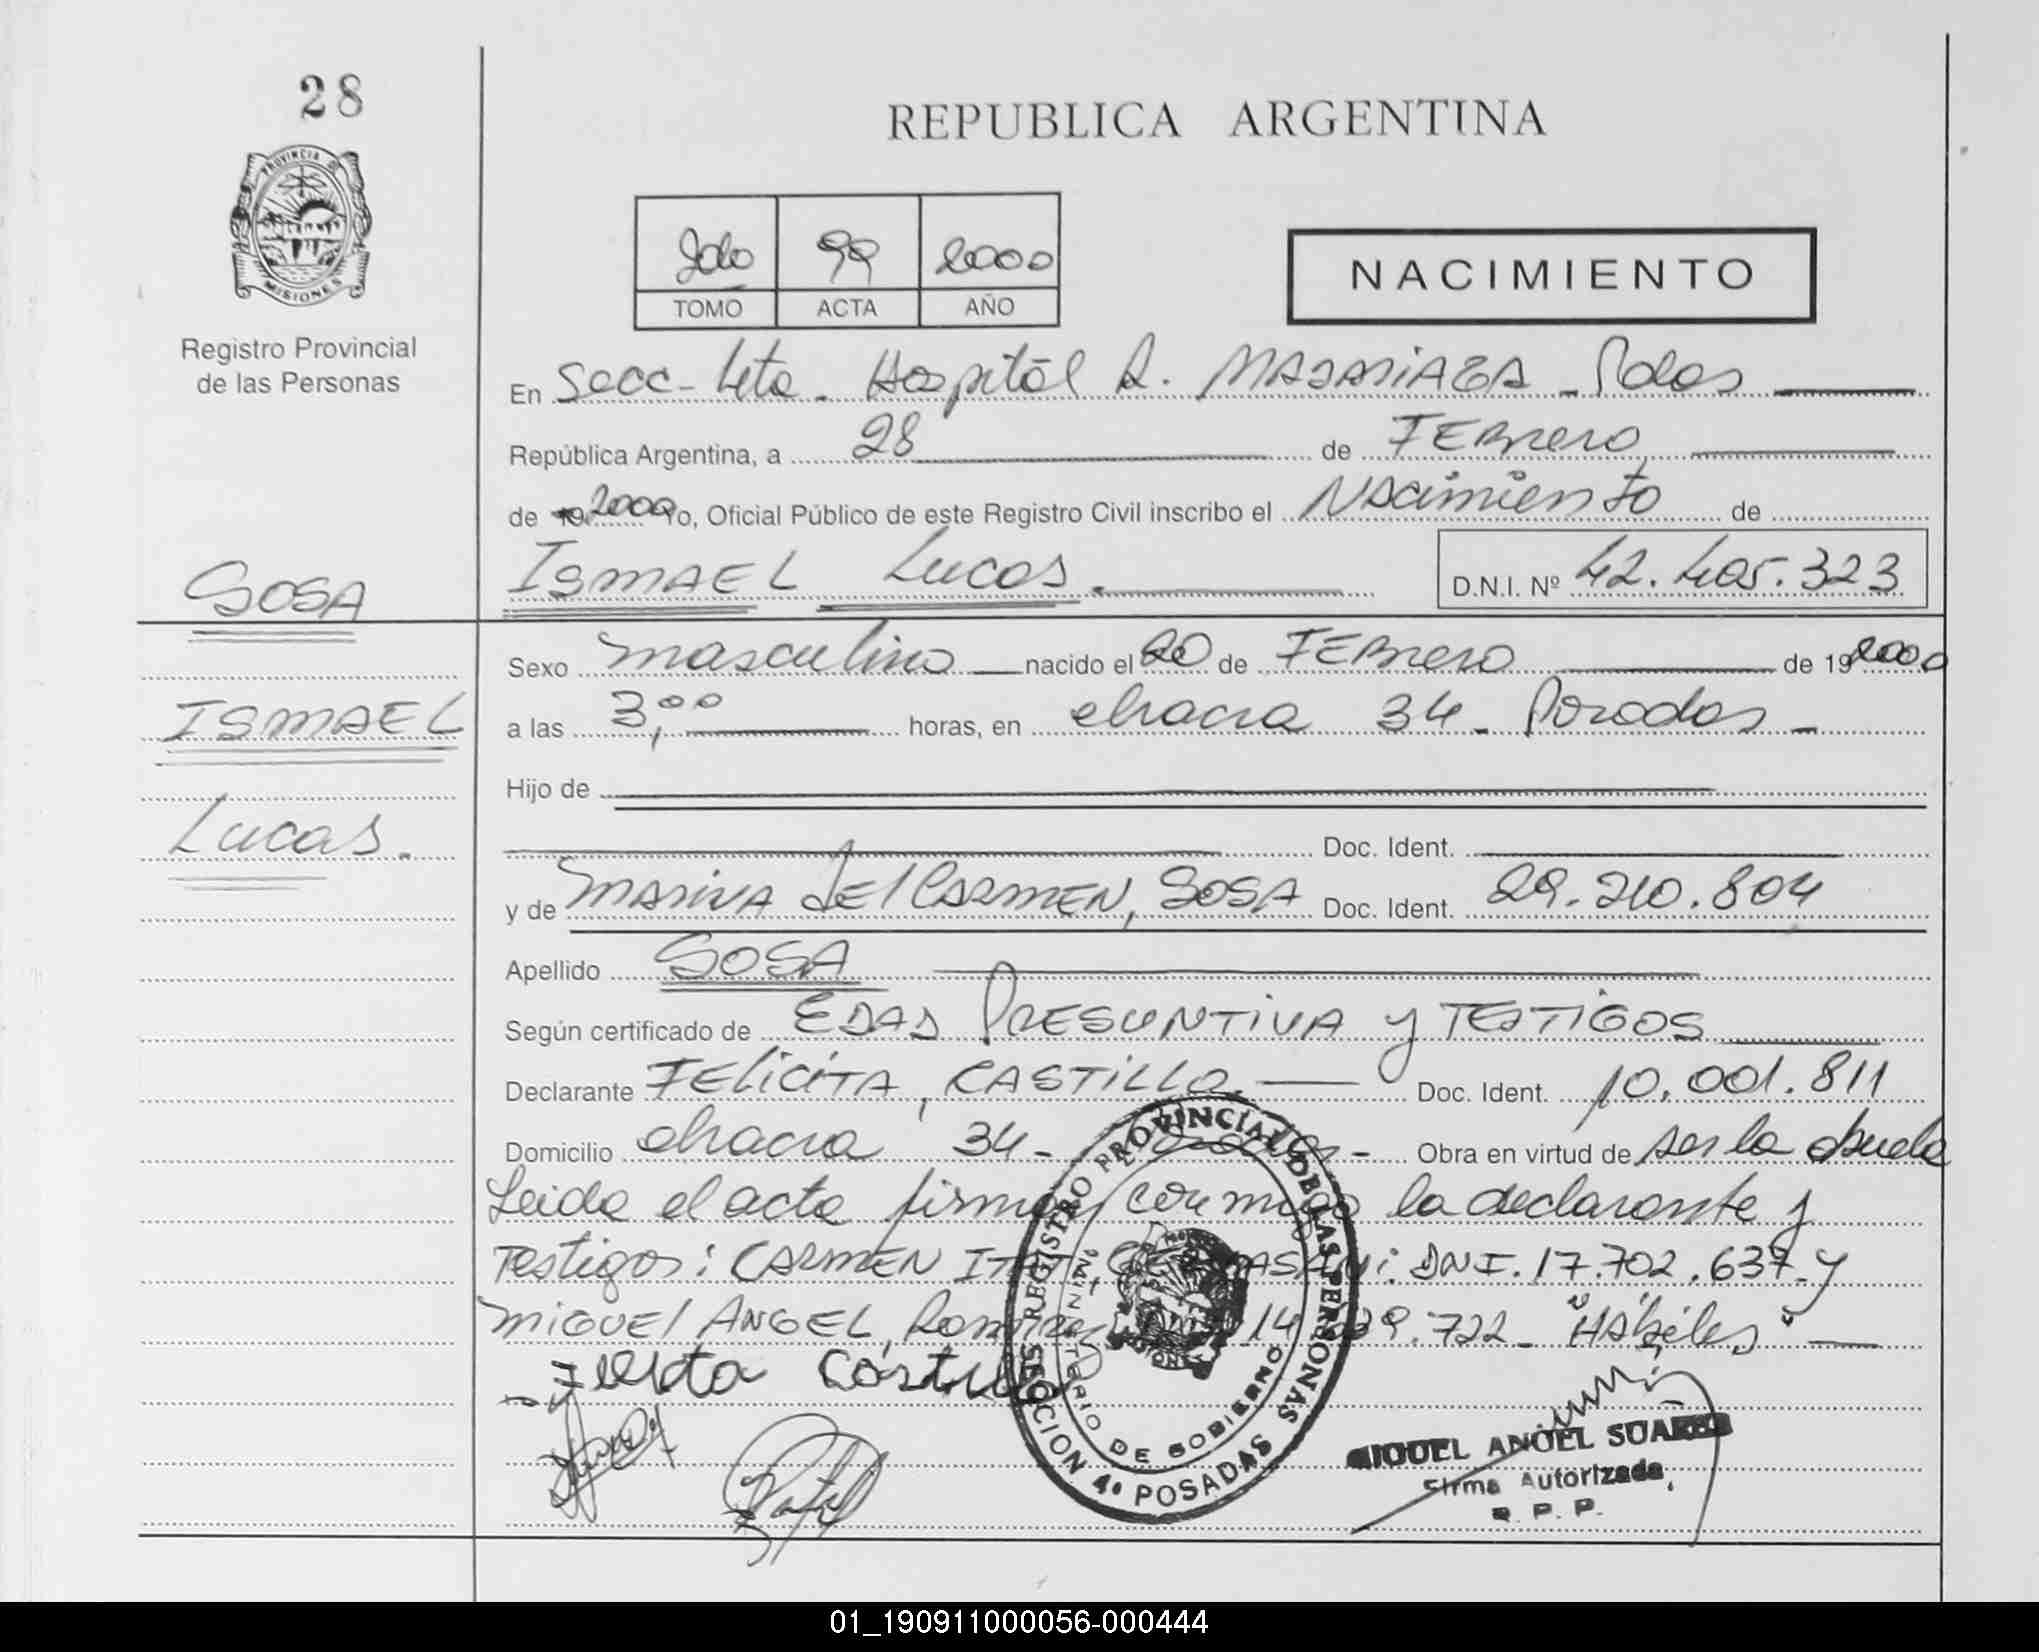 28
REPUBLICA ARGENTINA
PROVINCIA DE
MISIONES
Registro Provincial
de las Personas
2do 99 2000
TOMO ACTA AÑO
NACIMIENTO
En Secc - 4ta. Hospital R. MADARIAGA - Pdas
República Argentina, a 28 de FEBrero
de 19 2000 Yo, Oficial Público de este Registro Civil inscribo el NAcimiento de
ISMAEL Lucas. D.N.I. Nº 42.405.323
SOSA
ISMAEL
Lucas.
Sexo masculino nacido el 20 de FEBrero de 19 2000
a las 3,00 horas, en chacra 34 - Posadas -
Hijo de
Doc. Ident.
y de MARINA del CARMEN, SOSA Doc. Ident. 29.210.804
Apellido SOSA
Según certificado de EDAD PRESUNTIVA y TESTIGOS
Declarante FELICITA, CASTILLO Doc. Ident. 10.001.811
Domicilio chacra 34 - Obra en virtud de ser la abuela
Leida el acta firman conmigo la declarante y
Testigos: CARMEN DNI. 17.702.637 y
MIGUEL ANGEL, Ramirez 14 .722 - "HAbiles"
REGISTRO PROVINCIAL DE LAS PERSONAS
MINISTERIO DE GOBIERNO
SECCION 4ª POSADAS
MIGUEL ANGEL SUAREZ
Firma Autorizada
R. P. P.
01_190911000056-000444